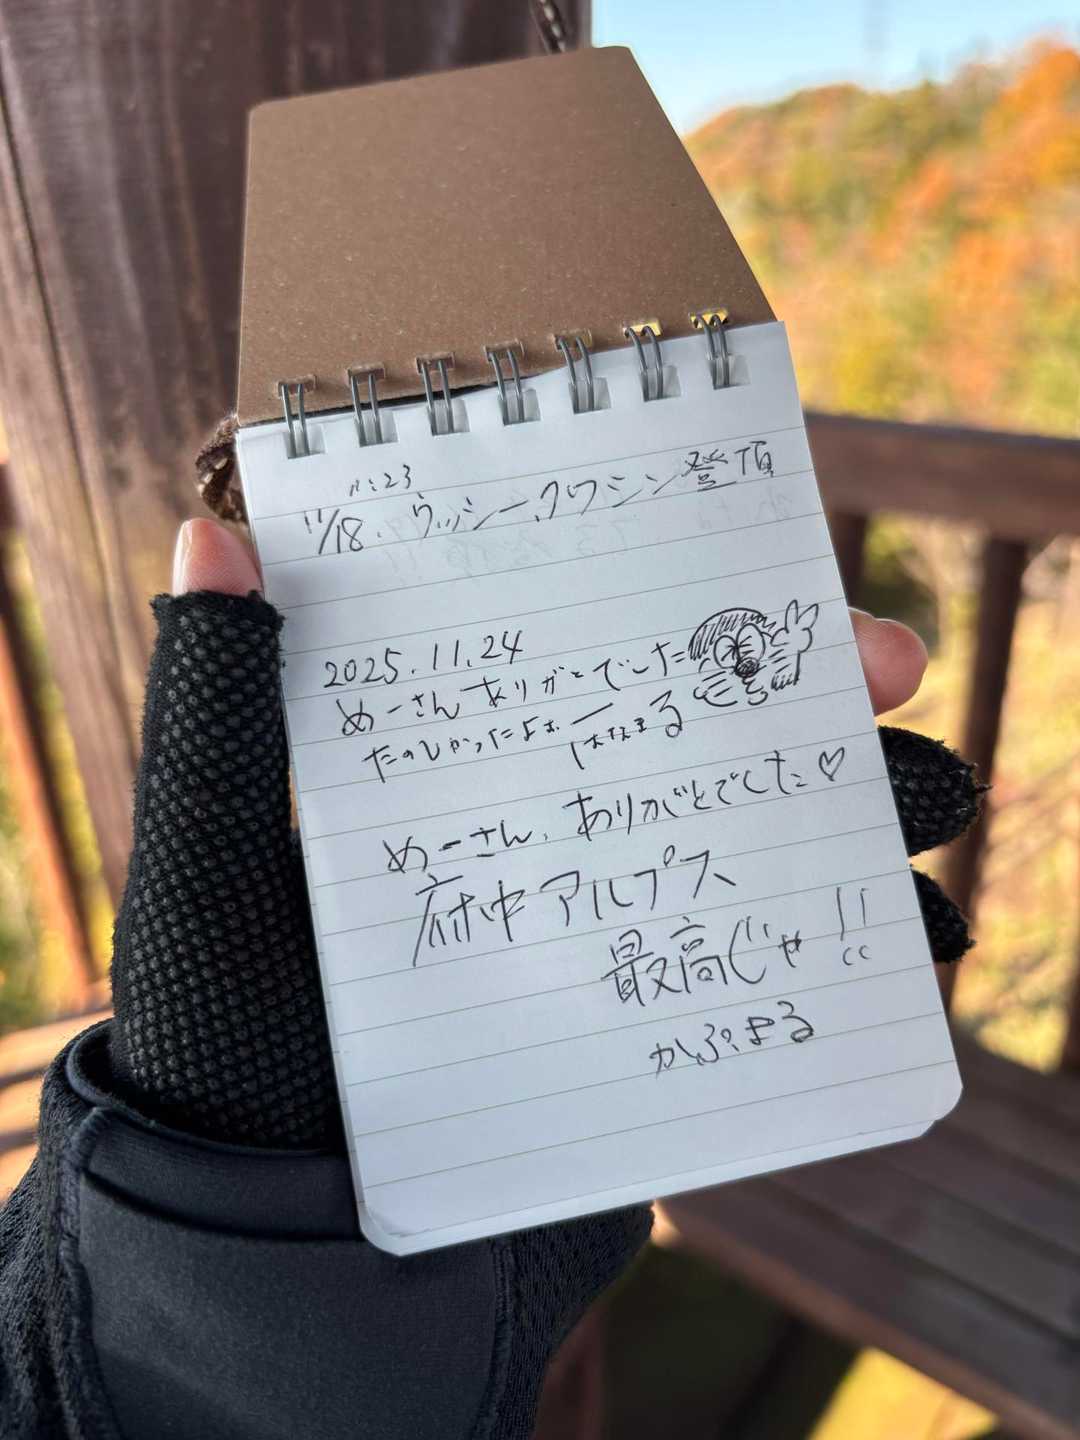 11:23
11/18. ウッシー、クワシン登頂
2025.11.24
めーさんありがとでした
たのしかったよぉー
はなまる
めーさん、ありがとでした♡
府中アルプス
最高じゃ!!
かぷまる